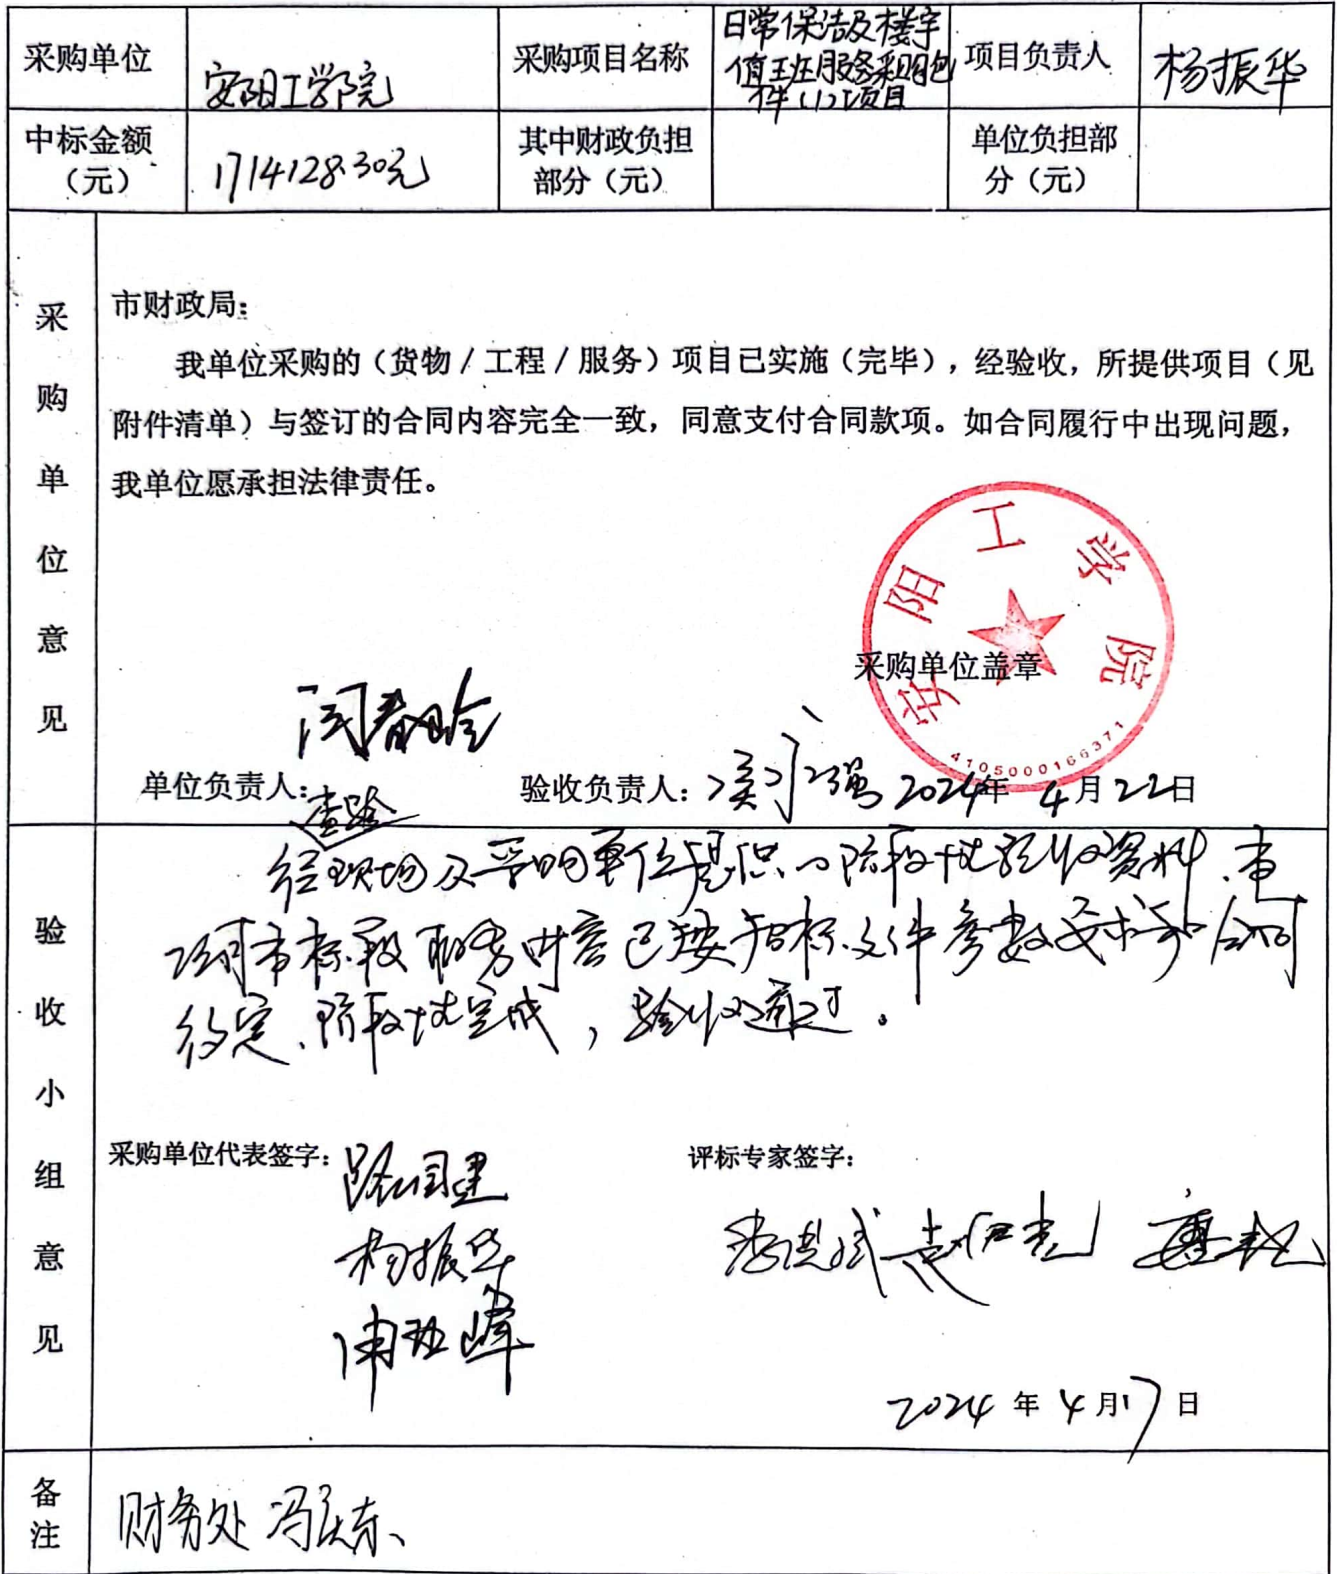 采购单位 安阳工学院 采购项目名称 日常保洁及楼宇值班服务采购包件(1)项目 项目负责人 杨振华
中标金额（元） 1714128.30元 其中财政负担部分（元） 单位负担部分（元）
采购单位意见
市财政局：
我单位采购的（货物／工程／服务）项目已实施（完毕），经验收，所提供项目（见
附件清单）与签订的合同内容完全一致，同意支付合同款项。如合同履行中出现问题，
我单位愿承担法律责任。
安阳工学院
4105000166371
采购单位盖章
单位负责人： 验收负责人： 2024年4月22日
验收小组意见
查验
经现场及 单位提供的阶段性验收资料，本
项目本标段服务内容已按招标文件参数要求和合同
约定、阶段性完成，验收通过。
采购单位代表签字： 评标专家签字：
路国建
杨振华
2024年4月17日
备注 财务处